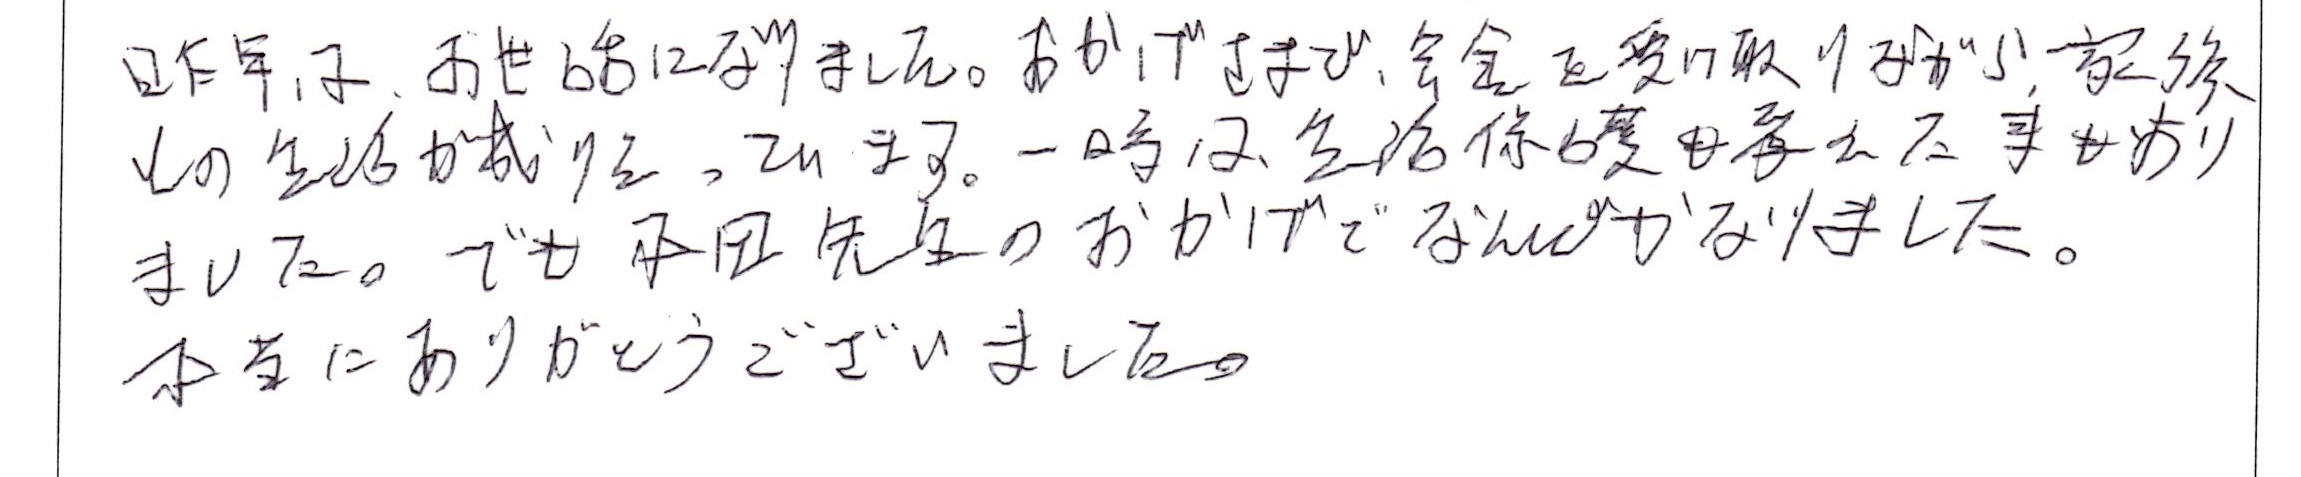 昨年は、お世話になりました。おかげさまで、年金を受け取りながら、家族
との生活が成り立っています。一時は、生活保護も考えた事もあり
ました。でも本田先生のおかげでなんとかなりました。
本当にありがとうございました。